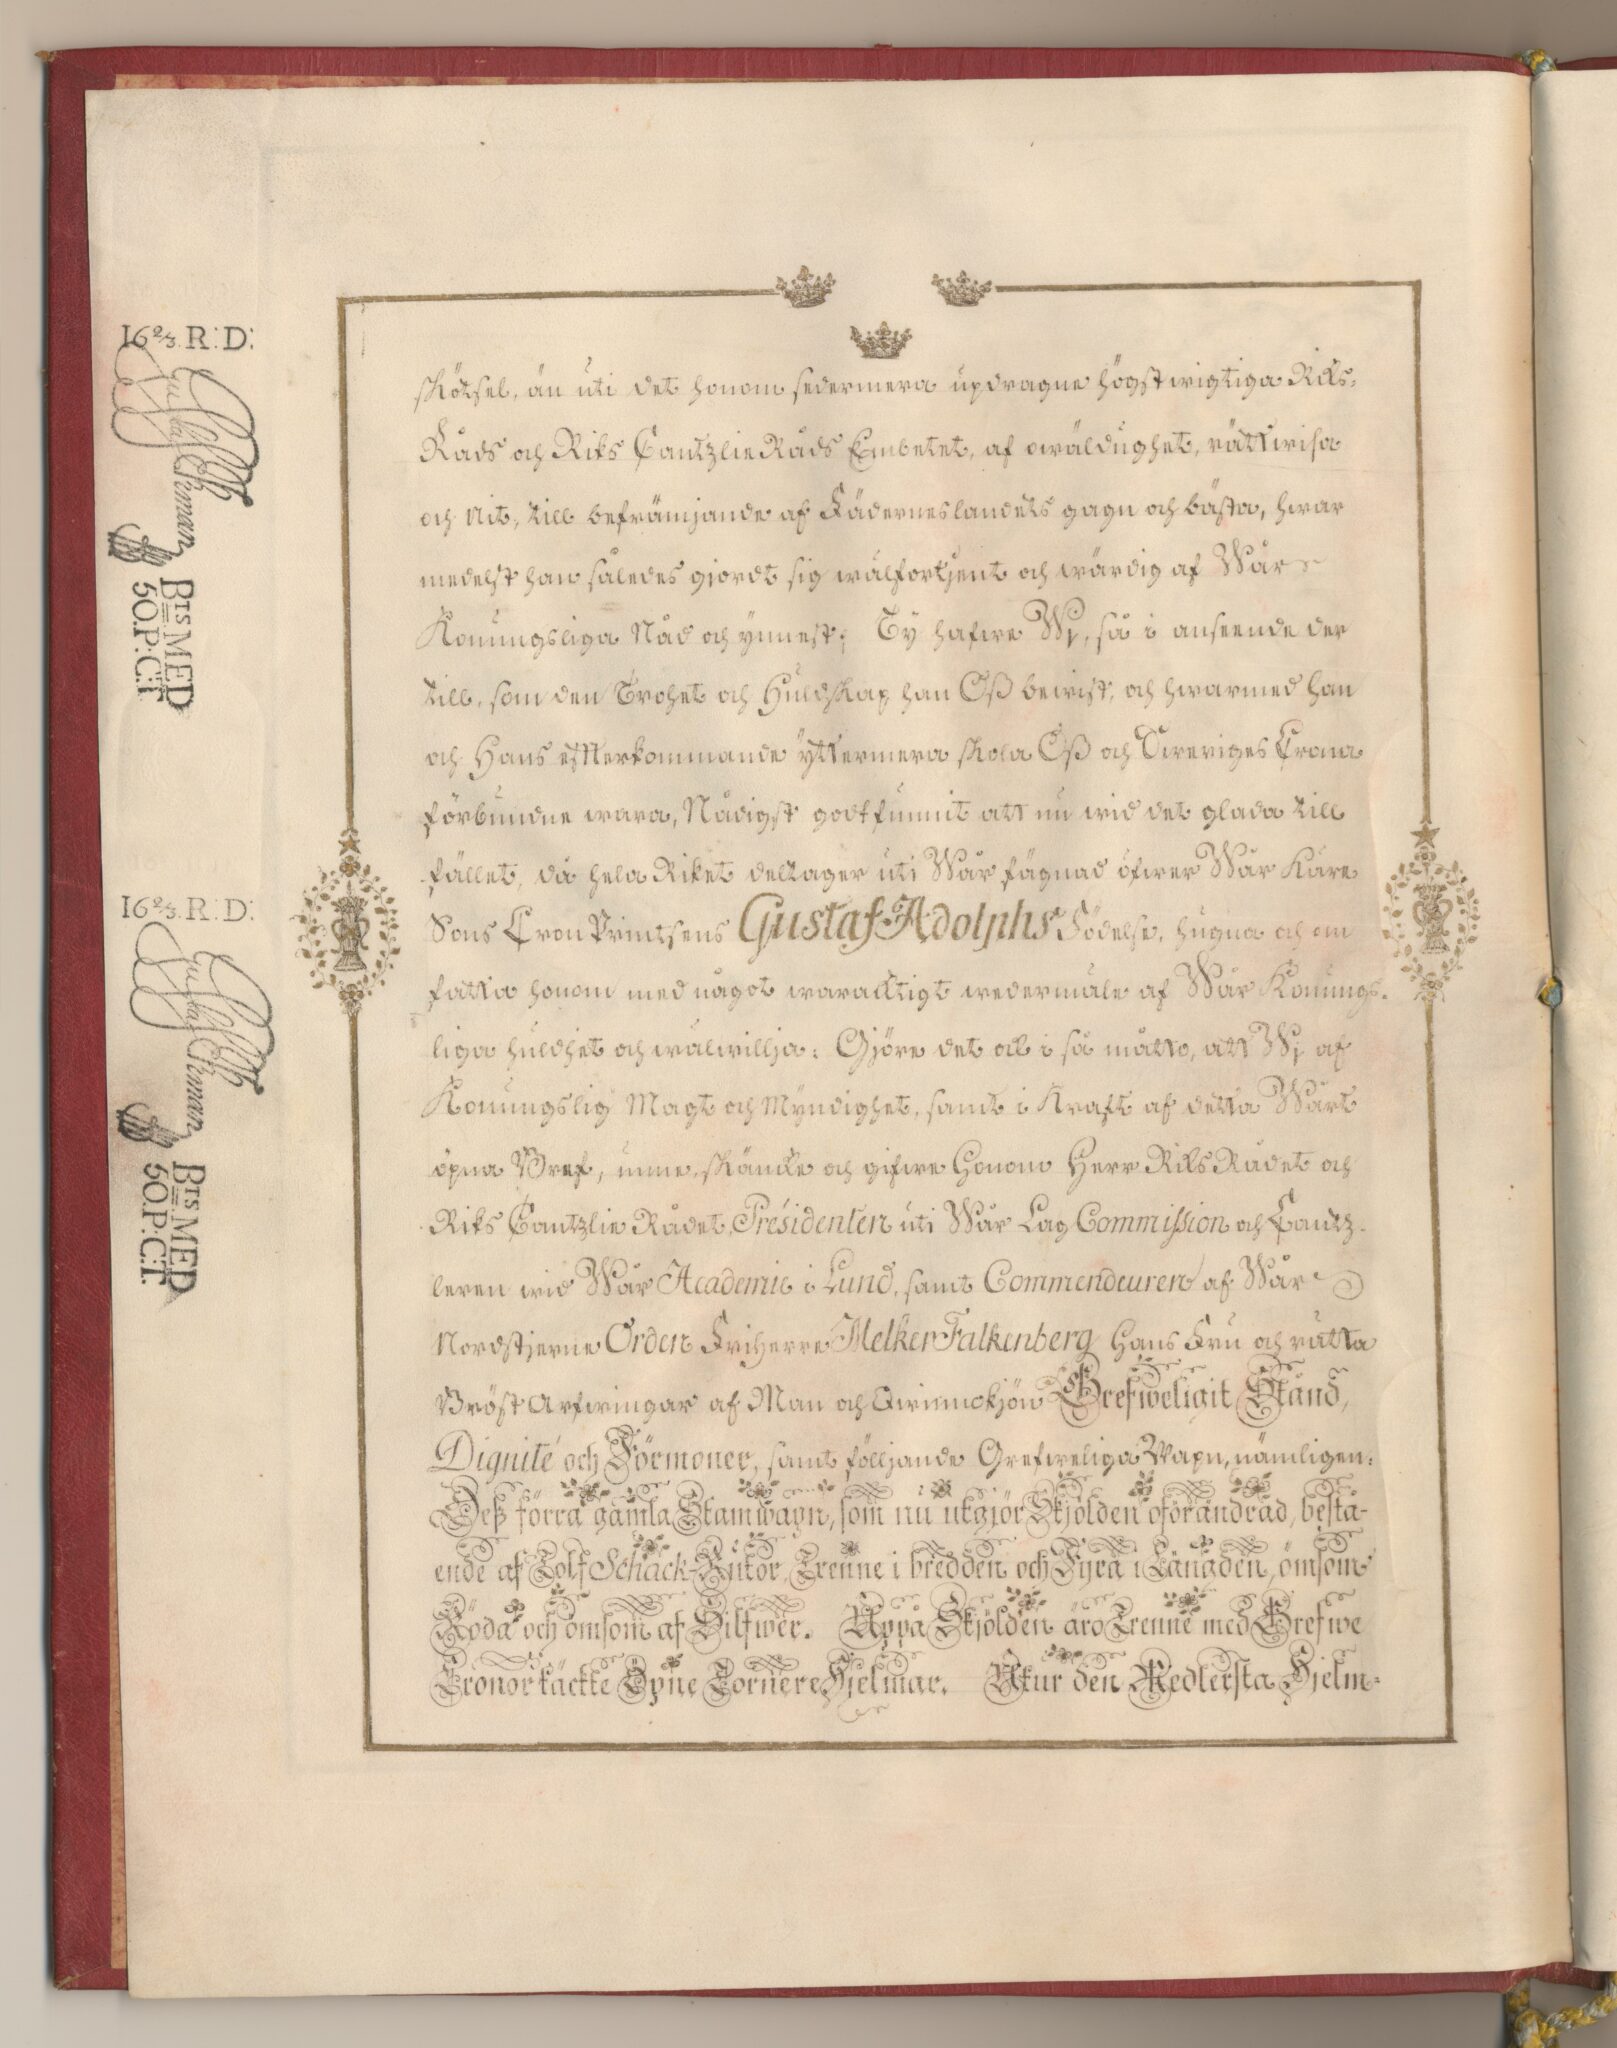 16 2/3. R: D:
Gustaf Ehrman
Brs MED
50. P: C:T.
16 2/3. R: D:
Gustaf Ehrman
Brs MED
50. P: C:T.
skötsel, än uti det honom sedermera updragne högstwigtiga Riks-
Råds och Riks Cantzlie Råds Embetet, af owäldughet, rättwisa
och nit, till befrämjande af Fäderneslandets gagn och bästa, hwar
medelst han således gjordt sig wälförtjent och wärdig af Wår
Konungsliga Nåd och ynnest; Ty hafwe Wj, så i anseende der
till, som den Trohet och Huldskap han Oß bewist, och hwarmed han
och Hans efterkommande yttermera skola Oß och Sweriges Crona
förbundne wara, Nådigst godtfunnit att nu wid det glada till
fället, då hela Riket deltager uti Wår fägnad öfwer Wår Käre
Sons CronPrintsens Gustaf Adolphs Födelse, hugna och om
fatta honom med något waracktigt wedermäle af Wår Konungs-
liga huldhet och wälwillja: Gjöre det ock i så måtto, att Wj af
Konungslig Magt och Myndighet, samt i Kraft af detta Wårt
öpna Bref, unne, skäncke och gifwe Honom Herr RiksRådet och
Riks Cantzlie Rådet, Présidenten uti Wår Lag Commission och Cantz-
leren wid Wår Academie i Lund, samt Commendeuren af Wår
Nordstjerne Orden Friherre Melker Falkenberg Hans Fru och rätta
Bröst Arfwingar af Man och Qwinnokjön Grefweligit Stånd,
Dignité och Förmoner, samt följjande Grefweliga Wapn, nämligen:
Deß förra gamla Stamwapn, som nu utgjör Skjölden oförändrad, bestå-
ende af Tolf Schack-Rutor, Trenne i bredden och Fyra i Längden, ömsom
Röda och ömsom af Silfwer. Uppå Skjölden äro Trenne med Grefwe
Cronor täckte Öpne Torner Hjelmar. Utur den Medlersta Hjelm-